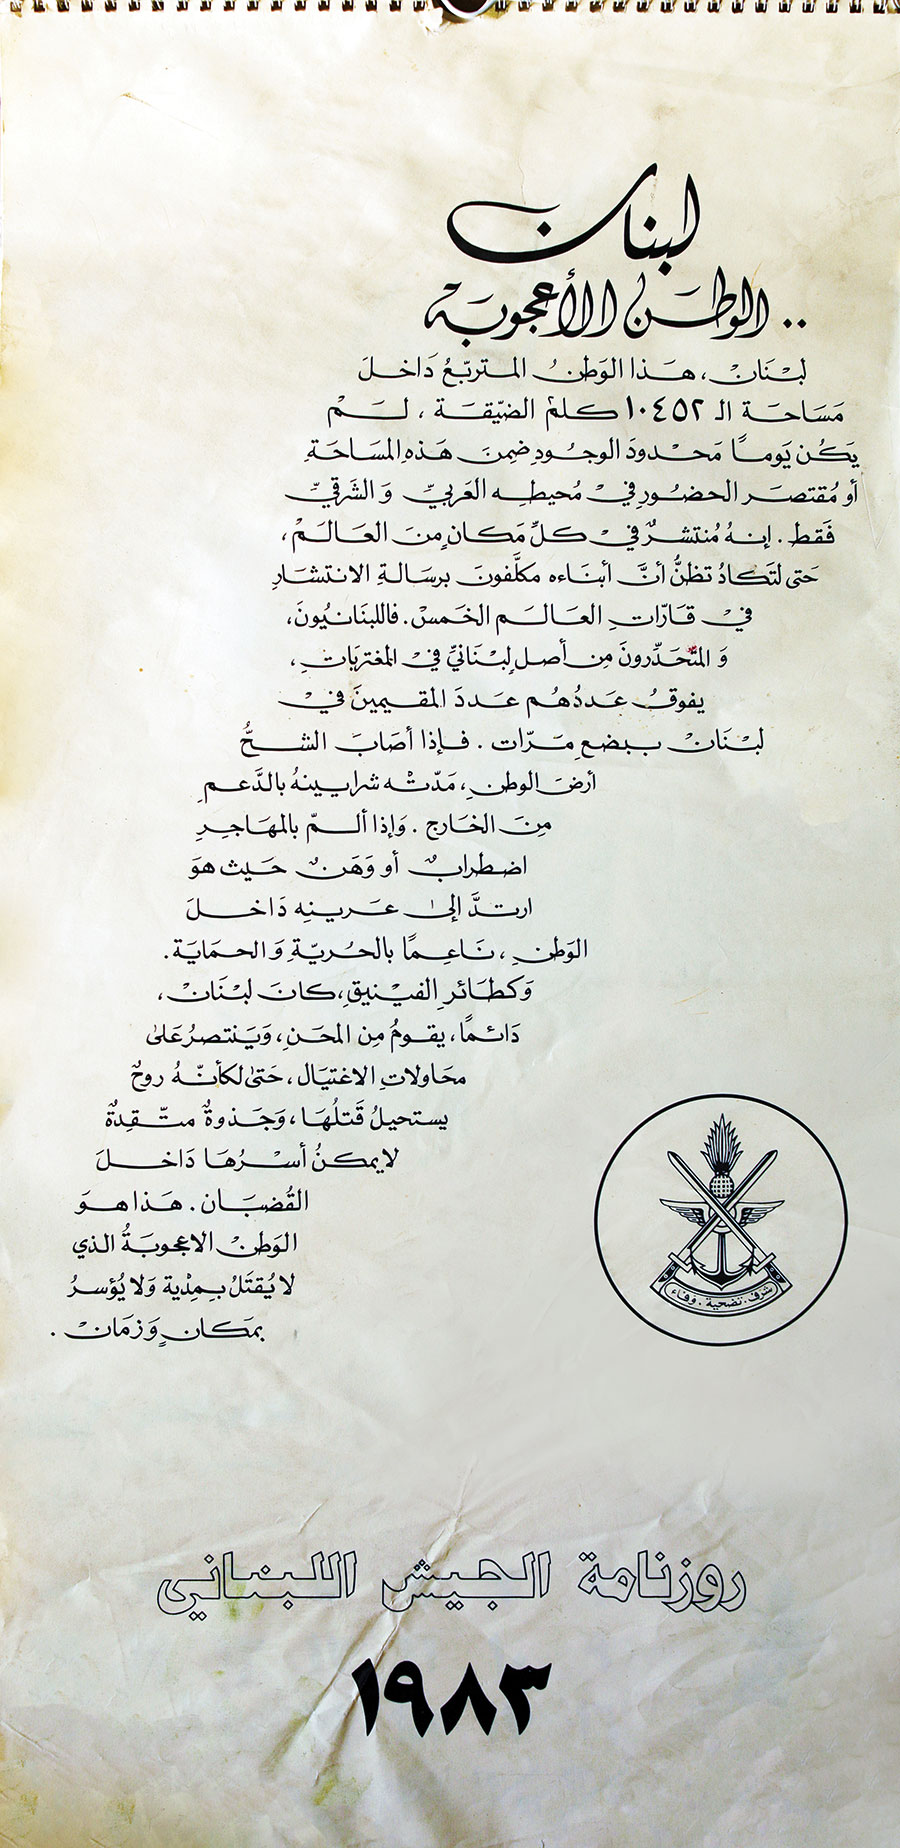 لبنان
.. الوطن الأعجوبة
لبْنَانْ، هَذا الوَطنُ المتربّعُ دَاخلَ
مَسَاحَة الـ ١٠٤٥٢ كلم٢ الضيّقَة، لَمْ
يَكُن يَومًا مَحْدودَ الوجُودِ ضِمنَ هَذهِ المسَاحَةِ
أو مُقتصَر الحضُورِ فيْ مُحيطِه العَربيِّ وَ الشَرقيِّ
فَقط. إنهُ مُنتشرٌ فيْ كلِّ مَكانٍ مِنَ العَالَمْ،
حَتى لتَكادُ تظنُّ أنَّ أبنَاءه مكلَّفونَ برسَالةِ الانتشَارِ
فيْ قَارّاتِ العَالَمِ الخَمسْ. فاللبنَانيُونَ،
وَ المتَحَدِّرونَ مِن أصلٍ لِبْنَانيٍّ فيْ المغتربَاتِ،
يفوقُ عَددُهُم عَددَ المقيمينَ فيْ
لبْنَانْ ببضعِ مَرّات. فإذا أصَابَ الشحُّ
أرضَ الوطنِ، مَدّتْه شرايينهُ بالدَّعمِ
مِنَ الخَارج. وَإذا ألمّ بالمهَاجرِ
اضطرابٌ أو وَهَنٌ حَيث هوَ
ارتدَّ إلى عَرينِه دَاخلَ
الوَطنِ، نَاعِمًا بالحُريّةِ وَالحمَايَة.
وَكطَائرِ الفيْنيقِ، كانَ لبْنَانْ،
دَائمًا، يقومُ مِن المحَنِ، وَيَنتصرُ عَلى
محَاولاتِ الاغتيَال، حَتى لكأنّهُ روحٌ
يستحيلُ قَتلُهَا، وَجَذوةٌ متّقِدةٌ
لا يمكنُ أسْرُهَا دَاخلَ
القُضبَان. هَذا هوَ
الوَطنْ الاعجوبَةُ الذي
لا يُقتَلُ بِمِدْية وَلا يُؤسرُ
بمَكانٍ وَزمَانْ.
شرف. تضحية. وفاء
روزنامة الجيش اللبناني
١٩٨٣